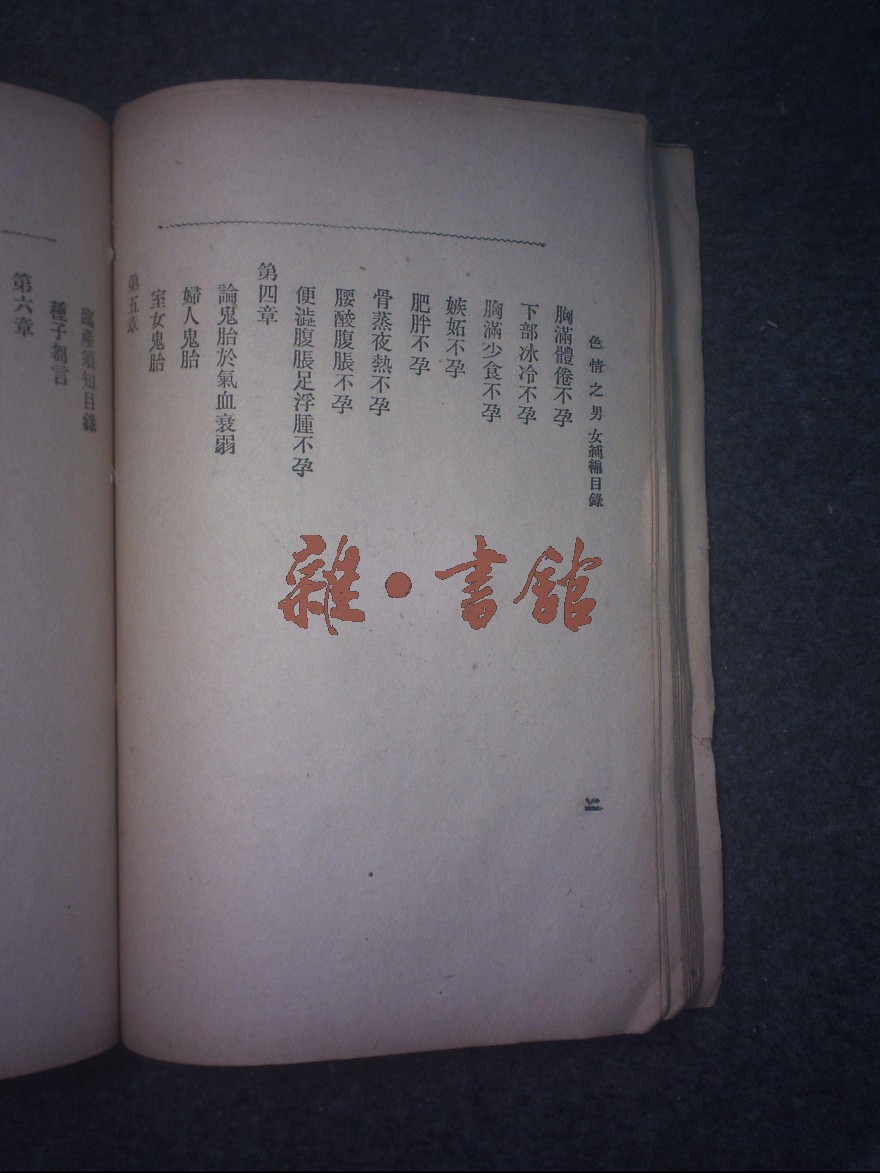 色情之男女續編目錄
胸滿體倦不孕
下部冰冷不孕
胸滿少食不孕
嫉妬不孕
肥胖不孕
骨蒸夜熱不孕
腰酸腹脹不孕
便澁腹脹足浮腫不孕
第四章
論鬼胎於氣血衰弱
婦人鬼胎
室女鬼胎
第五章
臨產須知目錄
種子芻言
第六章
雜·書館